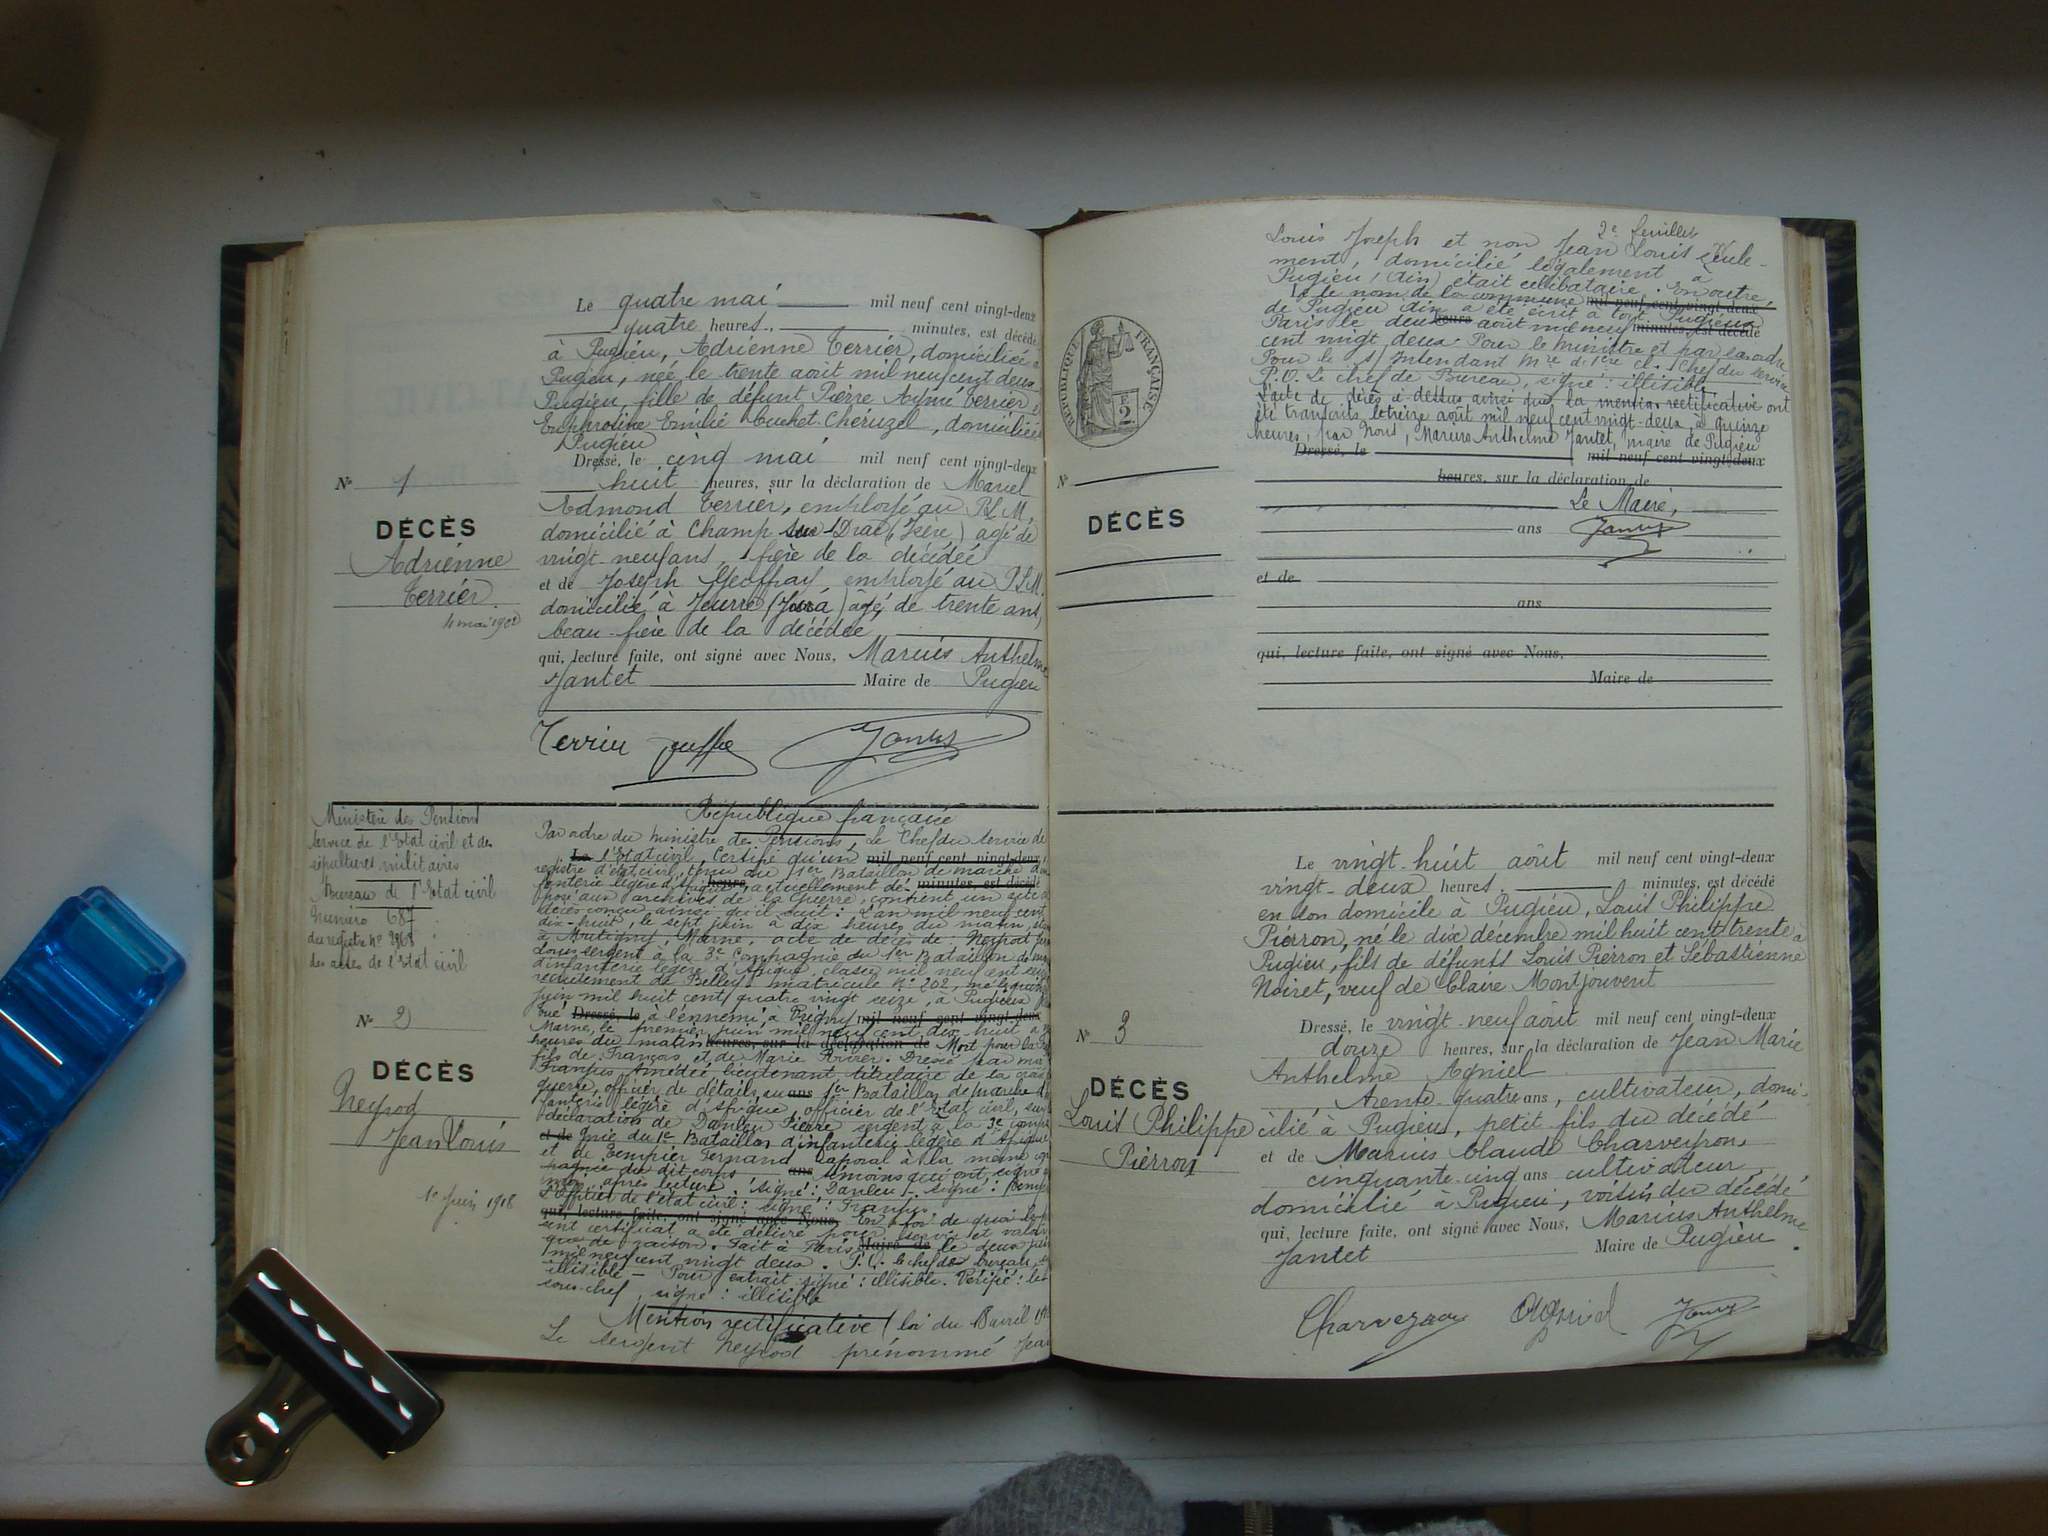 Le quatre mai mil neuf cent vingt-deux
quatre heures, minutes, est décédé
à Pugieu, Adrienne Terrier, domiciliée à
Pugieu, née le trente août mil neuf cent deux
Pugieu, fille de défunt Pierre Aymé Terrier
Euphrosine Emilie Cuchet-Chéruzel, domiciliée
Pugieu
Dressé, le cinq mai mil neuf cent vingt-deux
huit heures, sur la déclaration de Marcel
Edmond Terrier, employé au P.L.M,
domicilié à Champ sur Drac (Isère) agé de
vingt-neuf ans, frère de la décédée
et de Joseph Geoffray employé au P.L.M.
domicilié à Jeurre (Jura) âgé de trente ans,
beau-frère de la décédée
qui, lecture faite, ont signé avec Nous, Marius Anthelme
Jantet Maire de Pugieu
N° 1
DÉCÈS
Adrienne
Terrier
4 mai 1922
Terrier
Ministère des Pensions
Service de l'Etat civil et des
sépultures militaires
Bureau de l'Etat civil
Numéro 687
du registre N° 2968
des actes de l'Etat civil
N° 2
DÉCÈS
Neyrod
Jean Louis
1er Juin 1918
République française
Par ordre du ministre des Pensions, le Chef du Service de
Le l'Etat civil, Certifie qu'un mil neuf cent vingt-deux
registre d'état civil, tenu au 1er Bataillon de marche d'in
fanterie légère d'Afrique heures, actuellement dé- minutes, est décédé
posé aux archives de la Guerre, contient un acte de
décès conçu ainsi qu'il suit : L'an mil neuf cent
dix-huit, le sept juin à dix heures du matin, étant
à Mutigny Marne, acte de décès de Neyrod Jean
Louis sergent à la 3e Compagnie du 1er Bataillon de marche
d'infanterie légère d'Afrique, classe mil neuf cent seize
recrutement de Belley matricule N° 202, né le quinze
juin mil huit cent quatre vingt seize, à Pugieux
tué Dressé, le à l'ennemi à mil neuf cent vingt-deux
Marne, le premier juin mil neuf cent dix-huit à
heures du matin heures, sur la déclaration de Mort pour la
fils de François et de Marie Rivier. Dressé par moi
François Amédée lieutenant titulaire de la croix
guerre, officier de détails au ans 1er Bataillon de marche d'
fanterie légère d'Afrique, officier de l'état civil, sur
déclaration de Danleu Pierre sergent à la 3e compa
et de gnie du 1er Bataillon d'infanterie légère d'Afrique
et de Fernand caporal à la même com
pagnie du dit corps ans témoins qui ont signé a
moi après lecture signé : Danleu - signé :
L'Officier de l'état civil : signé :
qui, lecture faite, ont signé avec Nous, En foi de quoi le pré
sent certificat a été délivré pour servir et valoir
que de raison. Fait à Paris Maire de le deux
mil neuf cent vingt deux. P.O. le chef de bureau
illisible - Pour extrait signé : illisible. Vérifié : le
sous-chef, signé : illisible
Mention rectificative (loi du avril
Le sergent Neyrod prénommé Jean
2e feuillet
Louis Joseph et non Jean Louis seule-
ment, domicilié légalement à
Pugieu (Ain) était célibataire. En outre,
Le le nom de la commune mil neuf cent vingt-deux
de Pugieu Ain a été écrit à tort Pugieux
Paris le deux heures août mil neuf minutes, est décédé
cent vingt deux Pour le Ministre et par son ordre
Pour le S/Intendant Mre de 1ère cl. Chef du service
P.O. Le chef de Bureau, signé : illisible
L'acte de décès ci-dessus ainsi que la mention rectificative ont
été transcrits le treize août mil neuf cent vingt-deux, à quinze
heures, par Nous, Marius Anthelme Jantet, maire de Pugieu
Dressé, le mil neuf cent vingt-deux
heures, sur la déclaration de
Le Maire,
ans
et de
ans
qui, lecture faite, ont signé avec Nous,
Maire de
RÉPUBLIQUE FRANÇAISE
E
2
N°
DÉCÈS
N° 3
DÉCÈS
Louis Philippe
Pierron
Le vingt-huit août mil neuf cent vingt-deux
vingt-deux heures. minutes, est décédé
en son domicile à Pugieu, Louis Philippe
Pierron, né le dix décembre mil huit cent trente à
Pugieu, fils de défunts Louis Pierron et Sébastienne
Noiret, veuf de Claire Montjouvent
Dressé, le vingt-neuf août mil neuf cent vingt-deux
douze heures, sur la déclaration de Jean Marie
Anthelme Agniel
trente-quatre ans, cultivateur, domi-
cilié à Pugieu, petit fils du décédé
et de Marius Claude Charveyron,
cinquante-cinq ans cultivateur
domicilié à Pugieu, voisin du décédé
qui, lecture faite, ont signé avec Nous, Marius Anthelme
Jantet Maire de Pugieu.
Charveyron Agniel